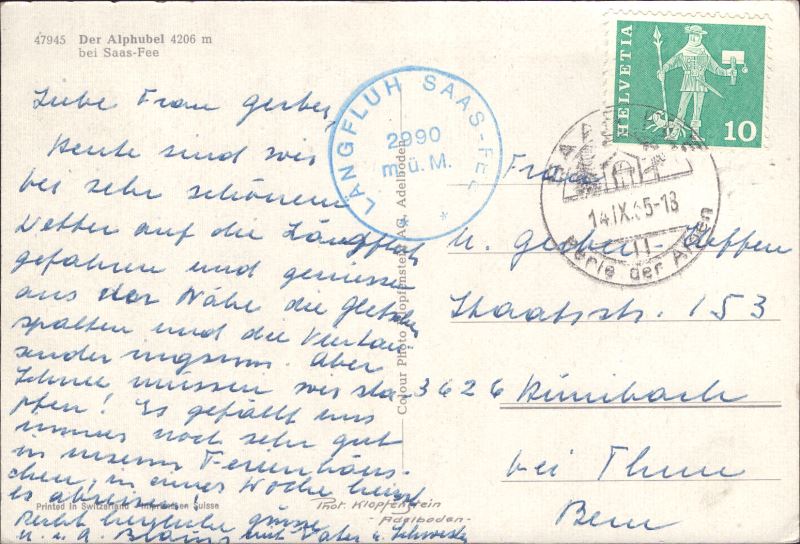 47945 Der Alphubel 4206 m
bei Saas-Fee
Liebe Frau Gerber,
Heute sind wir
bei sehr schönem
Wetter auf die Längfluh
gefahren und geniessen
aus der Nähe die Gletscher
spalten und die Viertau
sender ringsum. Aber
Schnee müssen wir sta
pfen! Es gefällt uns
immer noch sehr gut
in unserm Ferienhäus-
chen, in einer Woche heisst
es abreisen!
Recht herzliche Grüsse
u. a. mit Vater u. Schwester
LÄNGFLUH SAAS-FEE
2990
m.ü.M.
* *
Colour Photo Klopfenstein AG, Adelboden
HELVETIA
10
SAAS-FEE
14.IX.65-18
Perle der Alpen
Frau
M. Gerber-
Staatsstr. 153
3626 Hünibach
bei Thun
Bern
Printed in Switzerland Imprimé en Suisse
Phot. Klopfenstein
- Adelboden -